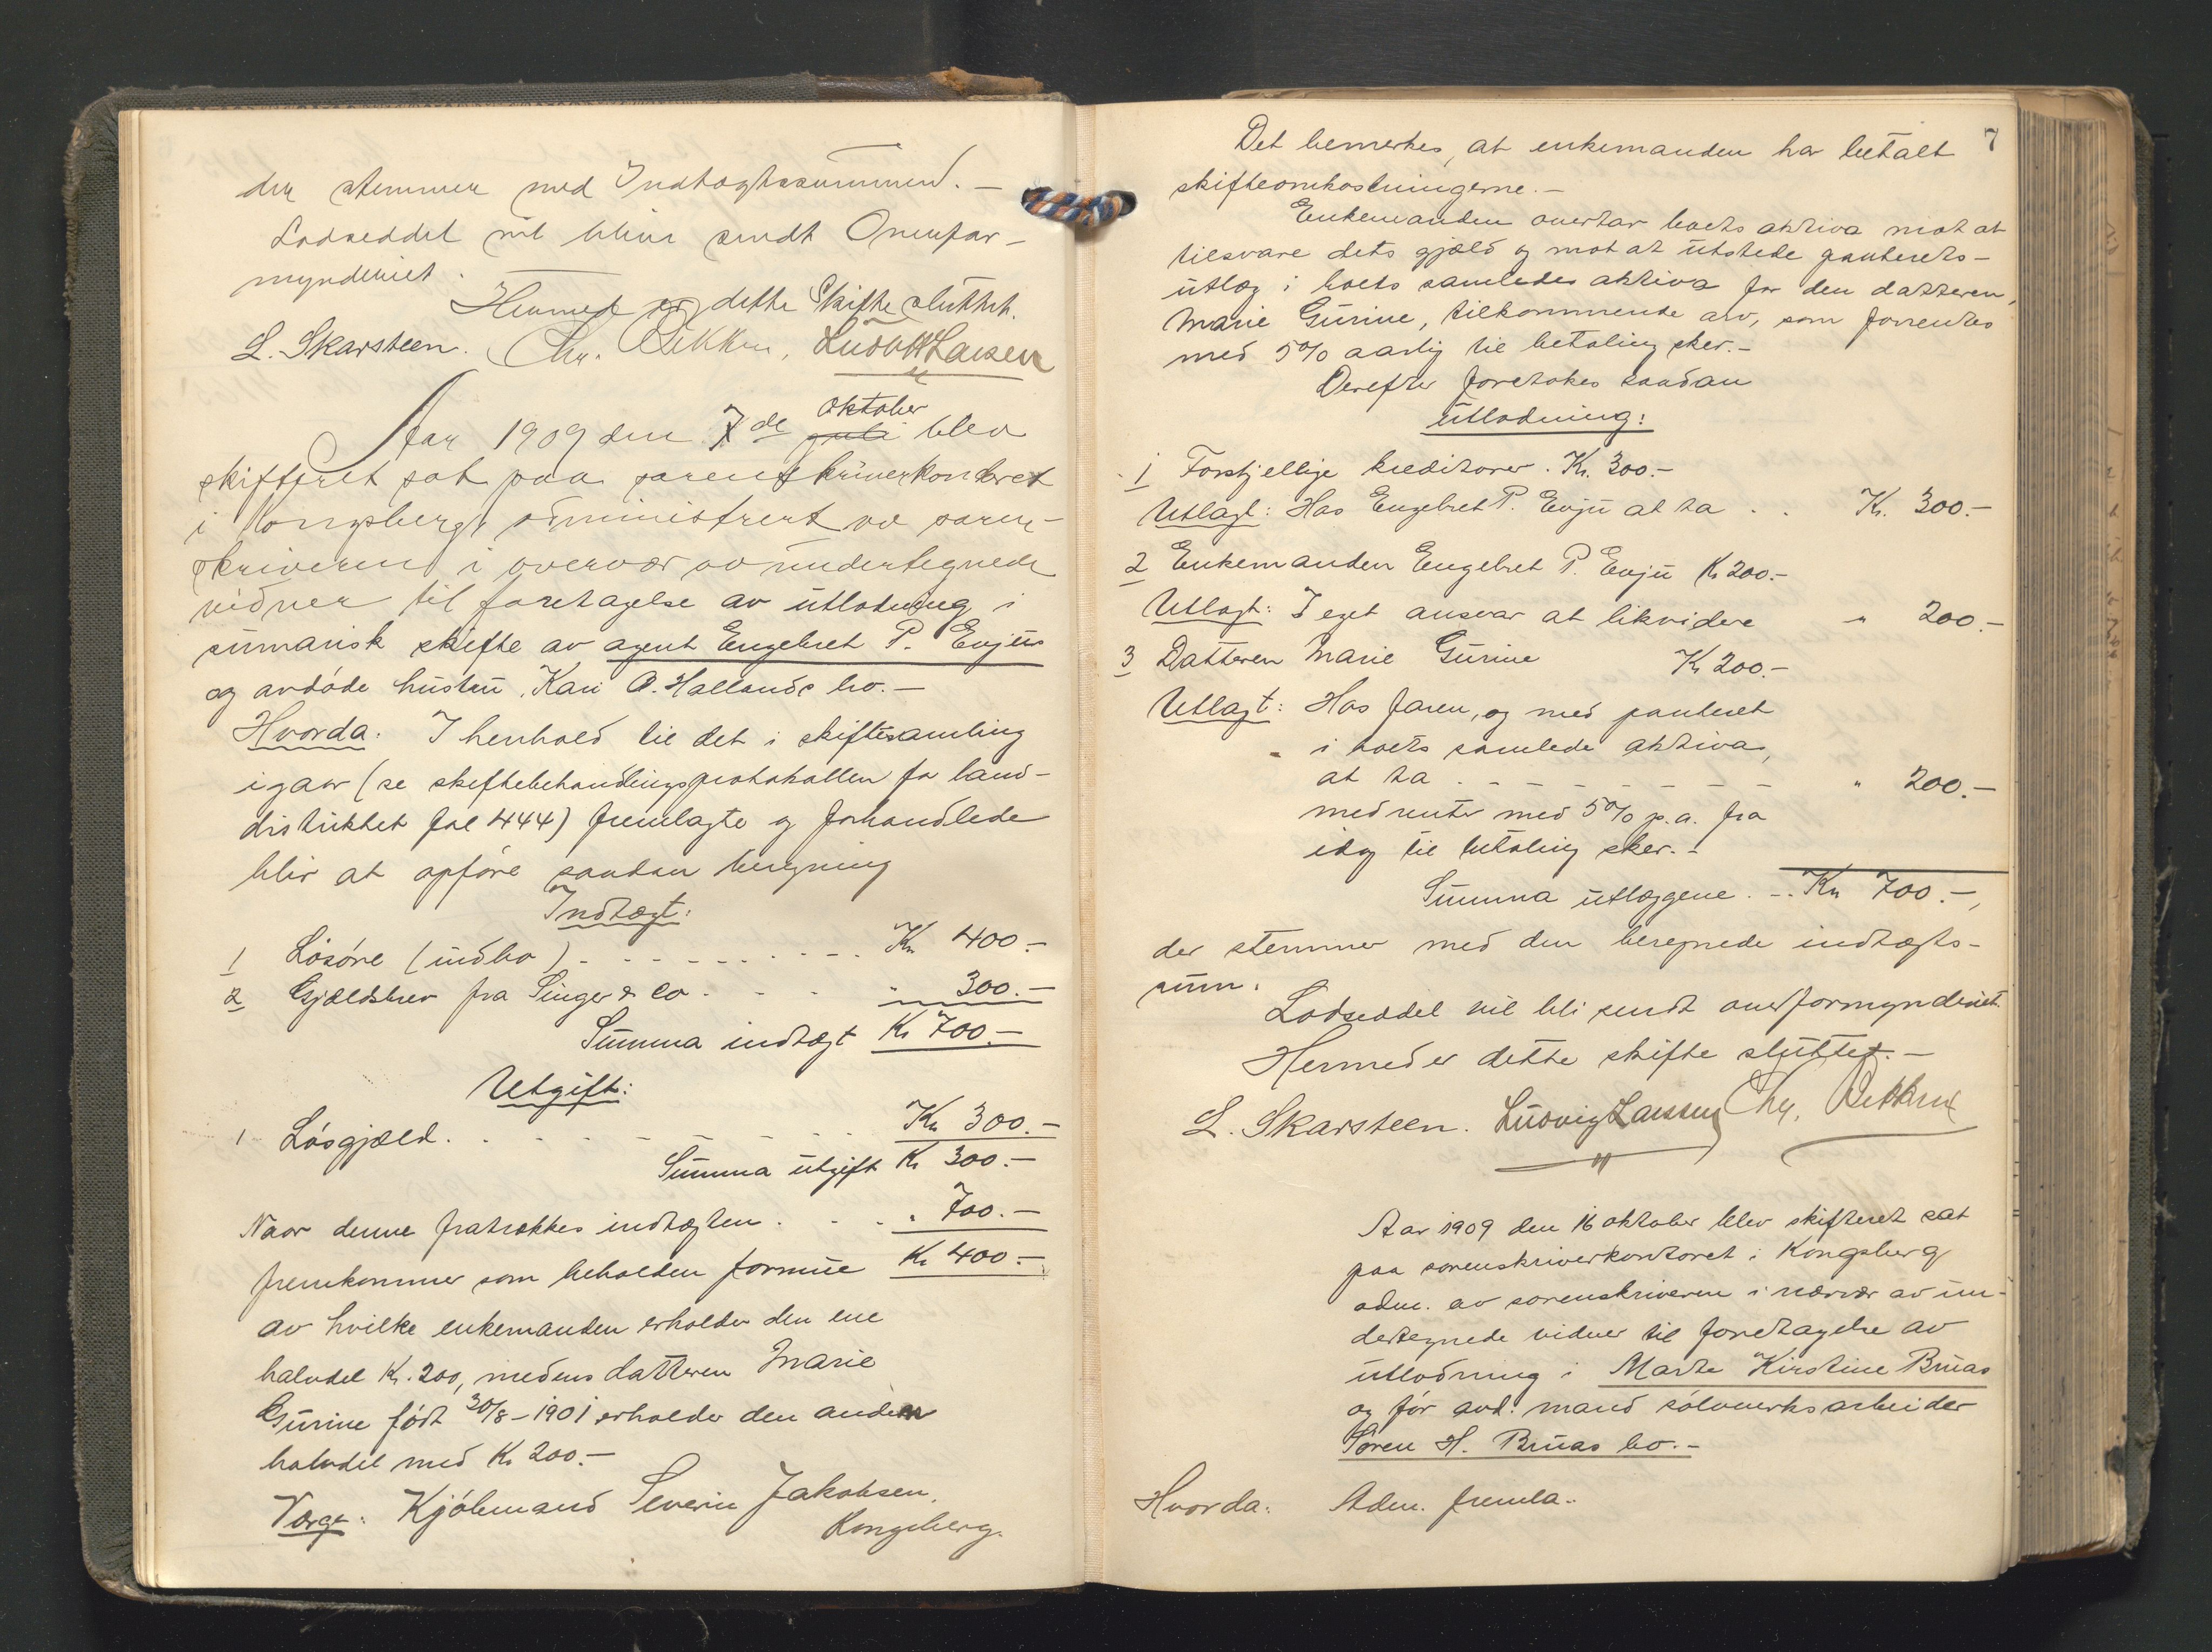 der stemmer med Indtægtssummen. —
Lodseddel vil blive sendt Overfor-
mynderiet.
Hermed er dette Skifte sluttet.
L. Skarsteen. Chr. Bekken, Ludvig Larsen
Aar 1909 den 7de oktober juli blev
skifteret sat paa sorenskriverkontoret
i Kongsberg, administrert av soren-
skriveren i overvær av undertegnede
vidner til foretagelse av utlodning i
sumarisk skifte av agent Engebret P. Evjus
og avdöde hustru, Kari A. Hallands bo. —
Hvorda: I henhold til det i skiftesamling
igaar (se skiftebehandlingsprotokollen for land-
distriktet fol 444) fremlagte og forhandlede
blir at opföre saadan beregning
Indtægt:
1 Lösöre (indbo) . - - - - - - - Kr 400.—
2 Gjældsbrev fra Singer & Co . - - . " 300.—
Summa indtægt Kr 700.—
Utgift:
1 Lösgjæld . . - - - - - - . Kr 300.—
Summa utgift Kr 300.—
Naar denne fratrækkes indtægten . . . " 700.—
fremkommer som beholden formue Kr 400.—
av hvilke enkemanden erholder den ene
halvdel Kr. 200, medens datteren Marie
Gurine födt 30/8-1901 erholder den anden
halvdel med Kr 200.—
Værge: Kjöbmand Severin Jakobsen,
Kongsberg.
7
Det bemerkes, at enkemanden har betalt
skifteomkostningerne. —
Enkemanden overtar boets aktiva mot at
tilsvare dets gjæld og mot at utstede panterets-
utlæg i boets samledes aktiva for den datteren,
Marie Gurine, tilkommende arv, som forrentes
med 5% aarlig til betaling sker. —
Derefter foretokes saadan
utlodning:
1 Forskjellige kreditorer. Kr. 300.—
Utlagt: Hos Engebret P. Evju at ta . . Kr. 300.—
2 Enkemanden Engebret P. Evju Kr 200.—
Utlagt: I eget ansvar at likvidere " 200.—
3 Datteren Marie Gurine Kr 200.—
Utlagt: Hos faren, og med panteret
i boets samlede aktiva,
at ta . - - - - - - - " 200.—
med renter med 5% p.a. fra
idag til betaling sker. —
Summa utlæggene . - . Kr 700.—,
der stemmer med den beregnede indtægts-
sum.
Lodseddel vil bli sendt overformynderiet.
Hermed er dette skifte sluttet. —
L. Skarsteen. Ludvig Larsen Chr. Bekken
Aar 1909 den 16 oktober blev skifteret sat
paa sorenskriverkontoret i Kongsberg
adm. av sorenskriveren i nærvær av un-
dertegnede vidner til foretagelse av
utlodning i Marte Kirstine Bruas
og för avd. mand sölvverksarbeider
Sören H. Bruas bo. —
Hvorda: Adm. fremla-